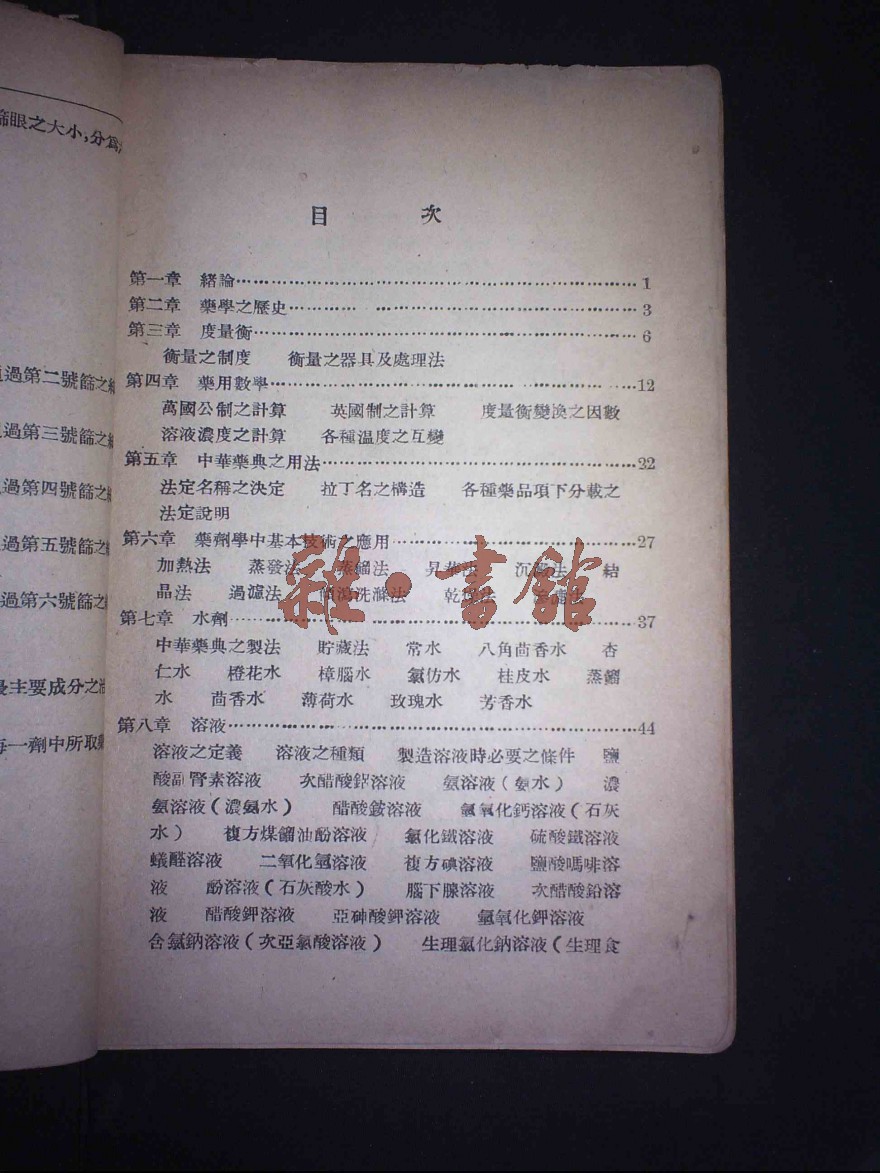 篩眼之大小，分爲
過第二號篩之
過第三號篩之
過第四號篩之
過第五號篩之
過第六號篩之
主要成分之
每一劑中所取
目 次
第一章 緒論………………1
第二章 藥學之歷史………………3
第三章 度量衡………………6
衡量之制度 衡量之器具及處理法
第四章 藥用數學………………12
萬國公制之計算 英國制之計算 度量衡變換之因數
溶液濃度之計算 各種温度之互變
第五章 中華藥典之用法………………22
法定名稱之決定 拉丁名之構造 各種藥品項下分載之
法定說明
第六章 藥劑學中基本技術之應用………………27
加熱法 蒸發法 蒸餾法 昇華法 沉澱法 結
晶法 過濾法 傾瀉洗滌法 乾燥法
第七章 水劑………………37
中華藥典之製法 貯藏法 常水 八角茴香水 杏
仁水 橙花水 樟腦水 氯仿水 桂皮水 蒸餾
水 茴香水 薄荷水 玫瑰水 芳香水
第八章 溶液………………44
溶液之定義 溶液之種類 製造溶液時必要之條件 鹽
酸副腎素溶液 次醋酸鋁溶液 氨溶液（氨水） 濃
氨溶液（濃氨水） 醋酸銨溶液 氫氧化鈣溶液（石灰
水） 複方煤餾油酚溶液 氯化鐵溶液 硫酸鐵溶液
蟻醛溶液 二氧化氫溶液 複方碘溶液 鹽酸嗎啡溶
液 酚溶液（石灰酸水） 腦下腺溶液 次醋酸鉛溶
液 醋酸鉀溶液 亞砷酸鉀溶液 氫氧化鉀溶液
含氯鈉溶液（次亞氯酸溶液） 生理氯化鈉溶液（生理食
雜·書館